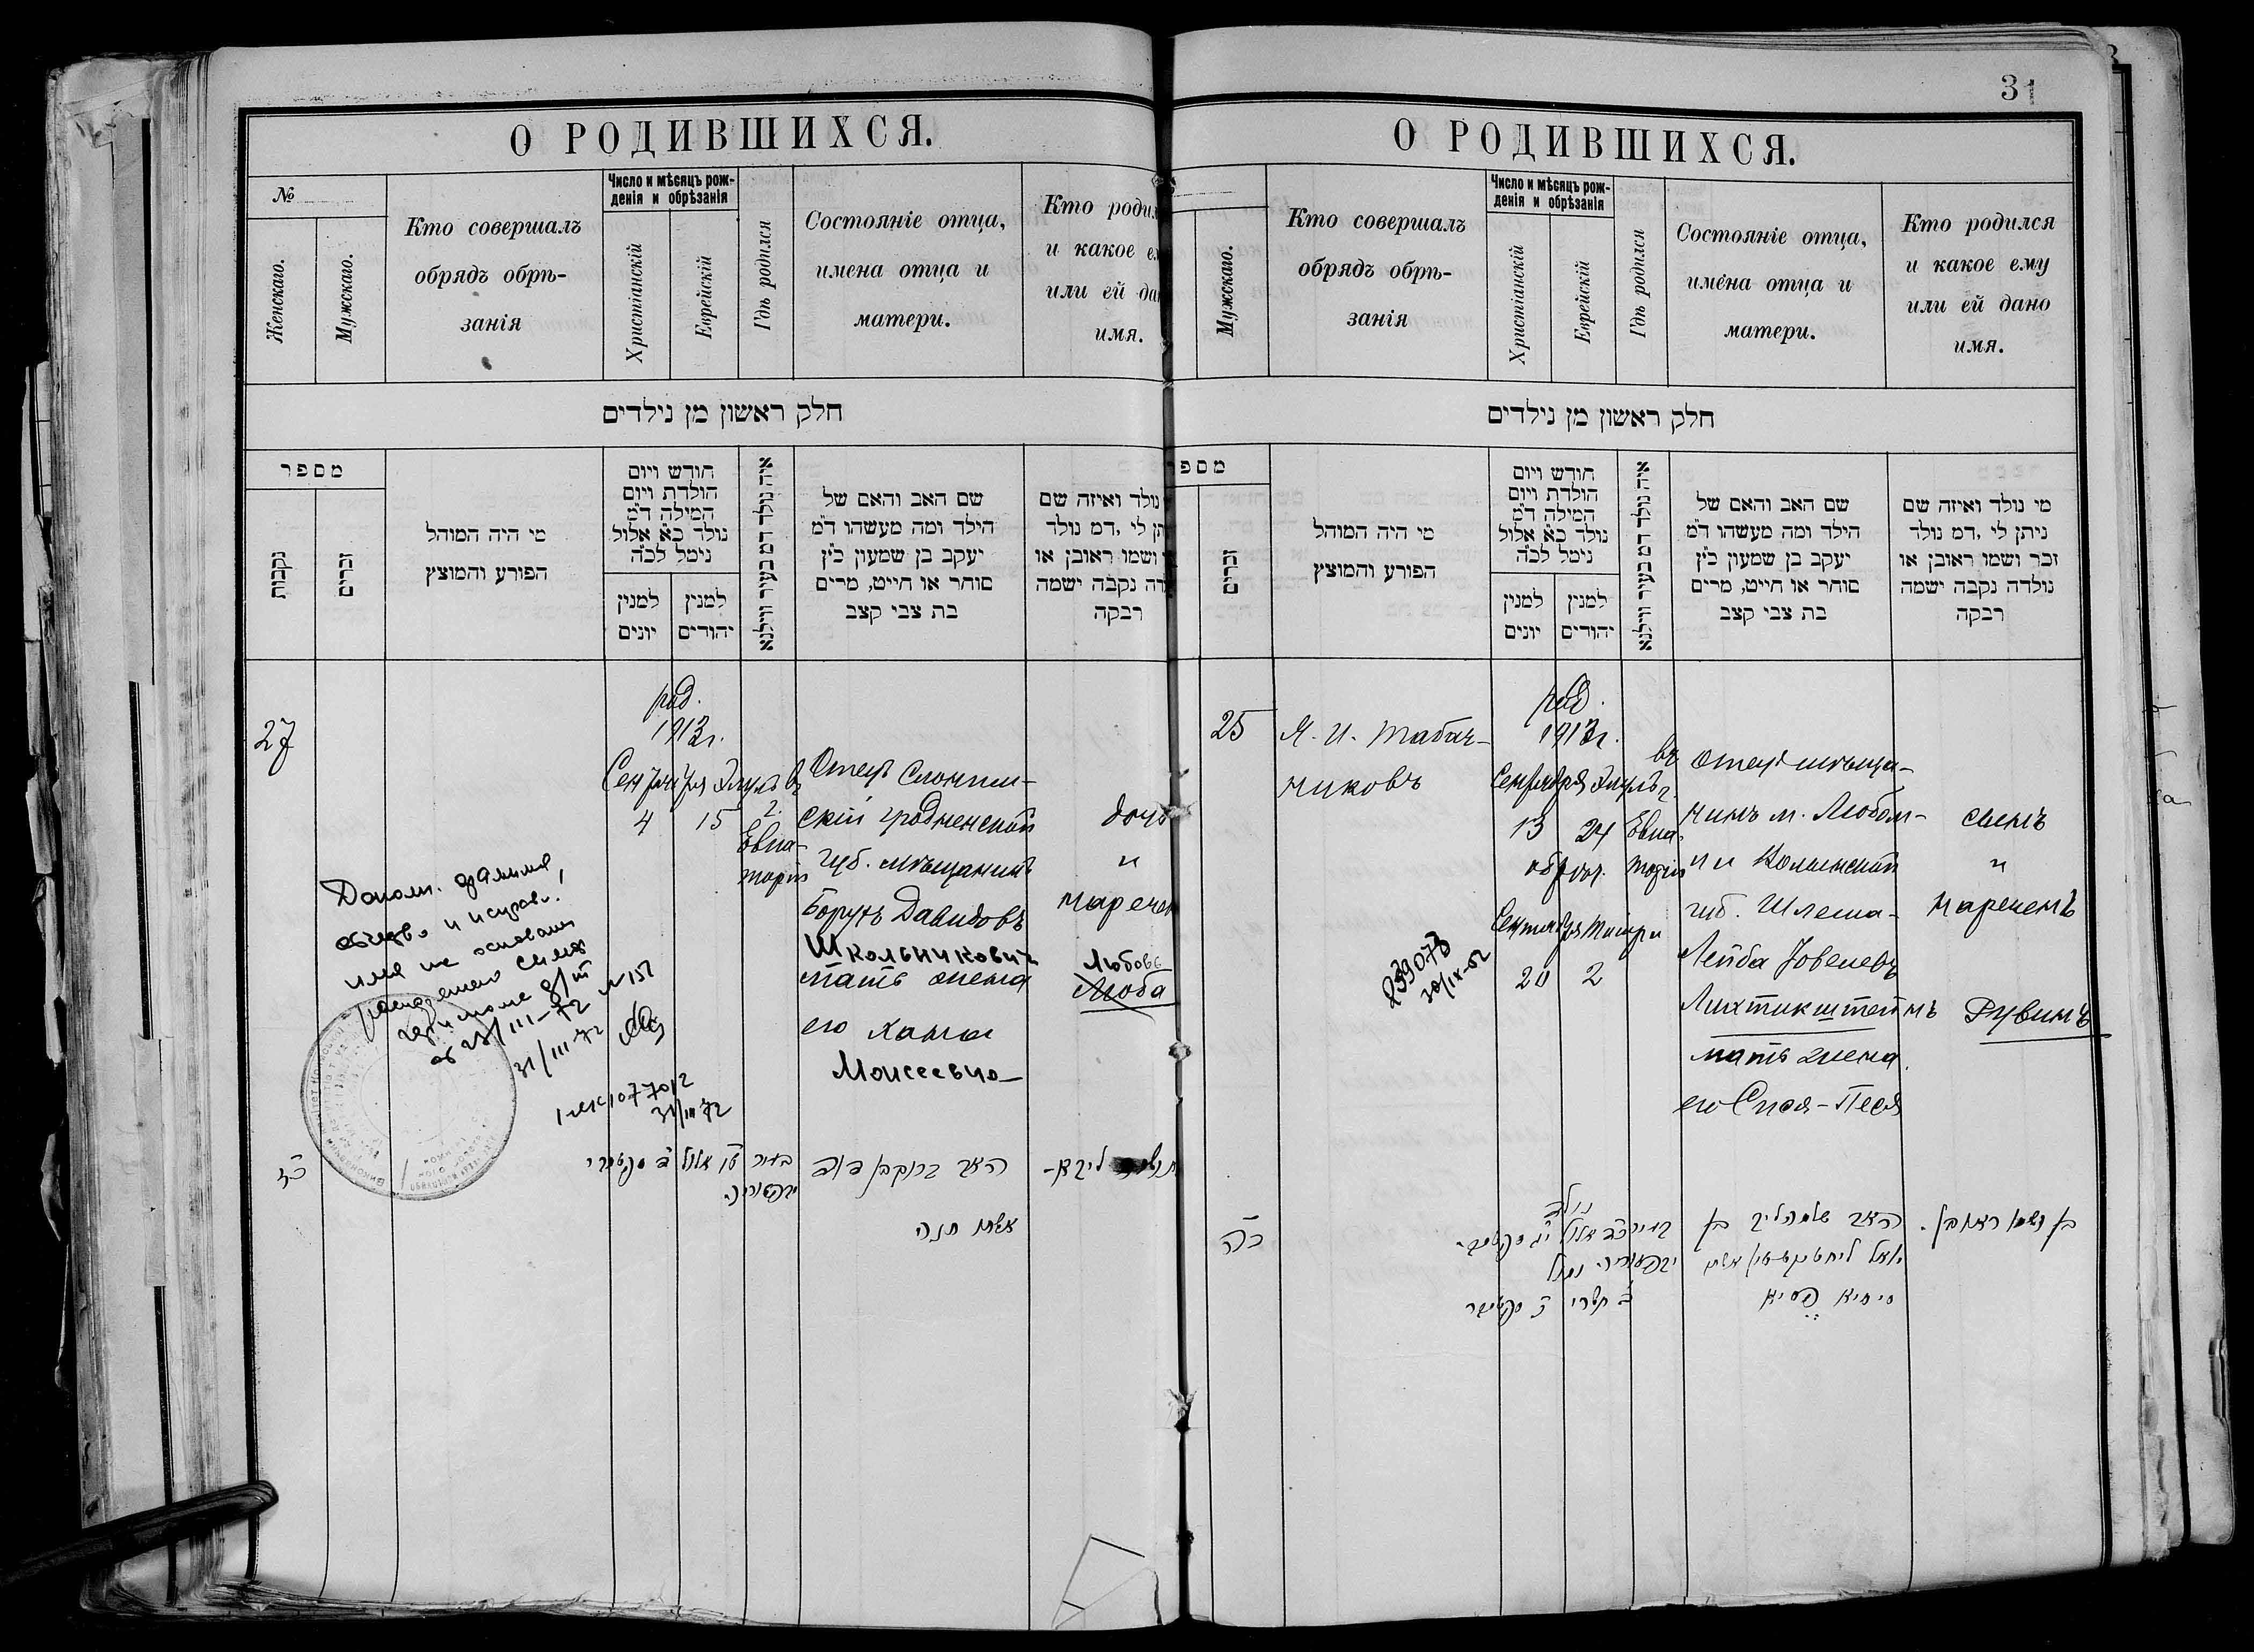 31
О РОДИВШИХСЯ.
№
Женскаго.
Мужскаго.
Кто совершалъ
обрядъ обрѣ-
занія
Число и мѣсяцъ рож-
денія и обрѣзанія
Христіанскій
Еврейскій
Гдѣ родился
Состояніе отца,
имена отца и
матери.
Кто роди
и какое е
или ей да
имя.
חלק ראשון מן נילדים
מספר
נקבות
זכרים
מי היה המוהל
הפורע והמוצץ
חודש ויום
הולדת ויום
המילה ד"מ
נולד כ"א אלול
נימל לכ"ה
למנין
יונים
למנין
יהודים
איה נולד דמ בעיר ווילנא
שם האב והאם של
הילד ומה מעשהו ד"מ
יעקב בן שמעון כ"ץ
סוחר או חייט, מרים
בת צבי קצב
נולד ואיזה שם
תן לי, דמ נולד
ושמו ראובן או
דה נקבה ישמה
רבקה
27
род.
1913г.
Сентября Элулъ въ
4 15 г.
Евпа-
торіи
Отецъ Слоним-
скій гродненской
губ. мѣщанинъ
Борухъ Давидовъ
Школьникович
мать жена
его Ханы
Моисеевна
дочь
и
наречен
Любовь
Люба
Дополн. фамилия,
отчество и исправл.
имя на основании
31/III 72
31/III 72
כז
אשתו חנה
О РОДИВШИХСЯ.
Мужскаго.
Кто совершалъ
обрядъ обрѣ-
занія
Число и мѣсяцъ рож-
денія и обрѣзанія
Христіанскій
Еврейскій
Гдѣ родился
Состояніе отца,
имена отца и
матери.
Кто родился
и какое ему
или ей дано
имя.
חלק ראשון מן נילדים
מספ
זכרים
מי היה המוהל
הפורע והמוצץ
חודש ויום
הולדת ויום
המילה ד"מ
נולד כ"א אלול
נימל לכ"ה
למנין
יונים
למנין
יהודים
איה נולד דמ בעיר ווילנא
שם האב והאם של
הילד ומה מעשהו ד"מ
יעקב בן שמעון כ"ץ
סוחר או חייט, מרים
בת צבי קצב
מי נולד ואיזה שם
ניתן לי, דמ נולד
זכר ושמו ראובן או
נולדה נקבה ישמה
רבקה
25
М. И. Табач-
никовъ
род.
1913г.
Сентября Элулъ въ г.
13 24 Евпа
обрѣз. торіи
Сентября Тишри
20 2
239078
30/IX-52
Отецъ мѣща-
нинъ м. Любом-
ли Волынской
губ. Шлема-
Лейба Іовелевъ
Лихтикштейнъ
мать жена
его Сися-Песя
сынъ
и
нареченъ
Рувинъ
כה